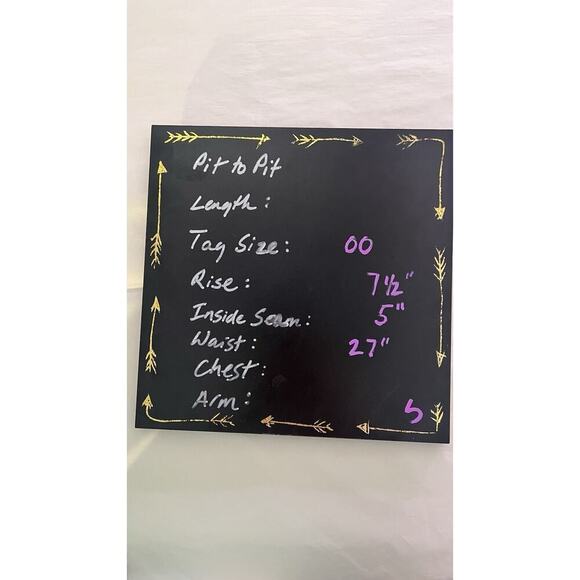 Pit to Pit
Length:
Tag Size: 00
Rise: 7 1/2"
Inside Seam: 5"
Waist: 27"
Chest:
Arm:
5